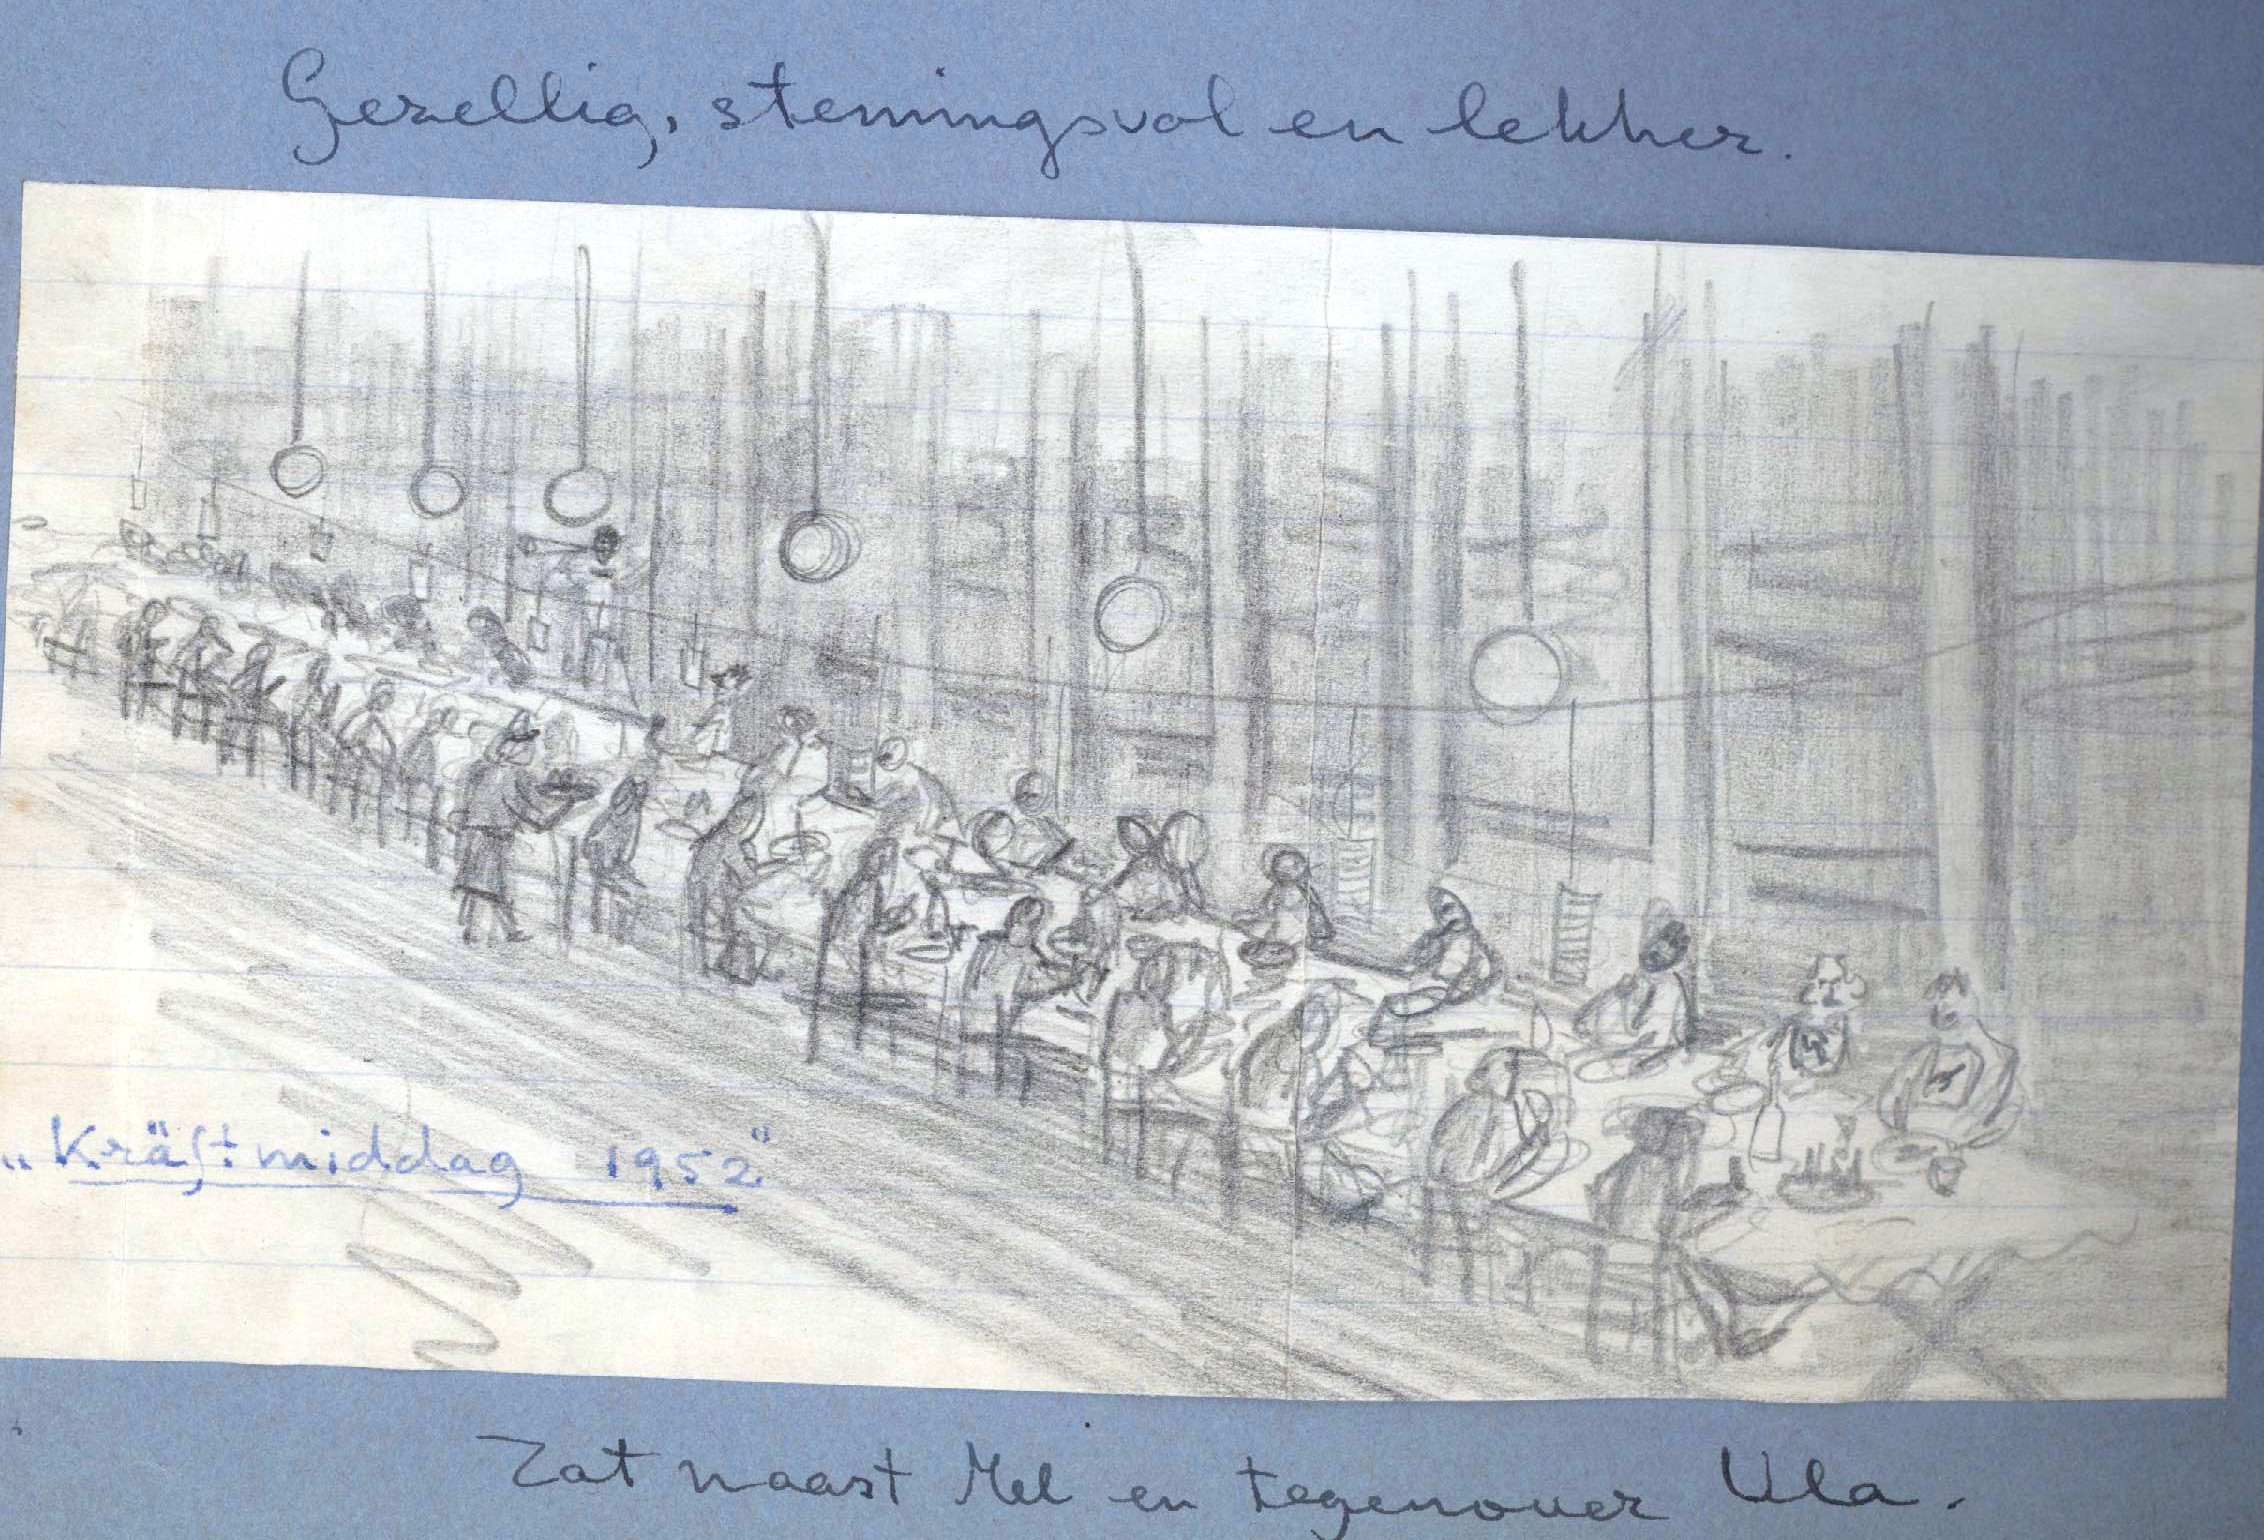 Gezellig, stemingsvol en lekker.
„Kräftmiddag 1952"
Zat naast Mel en tegenover Ula.